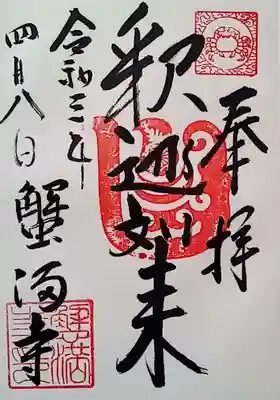 奉拝
釈迦如来
令和三年
四月八日 蟹満寺
蟹満寺印